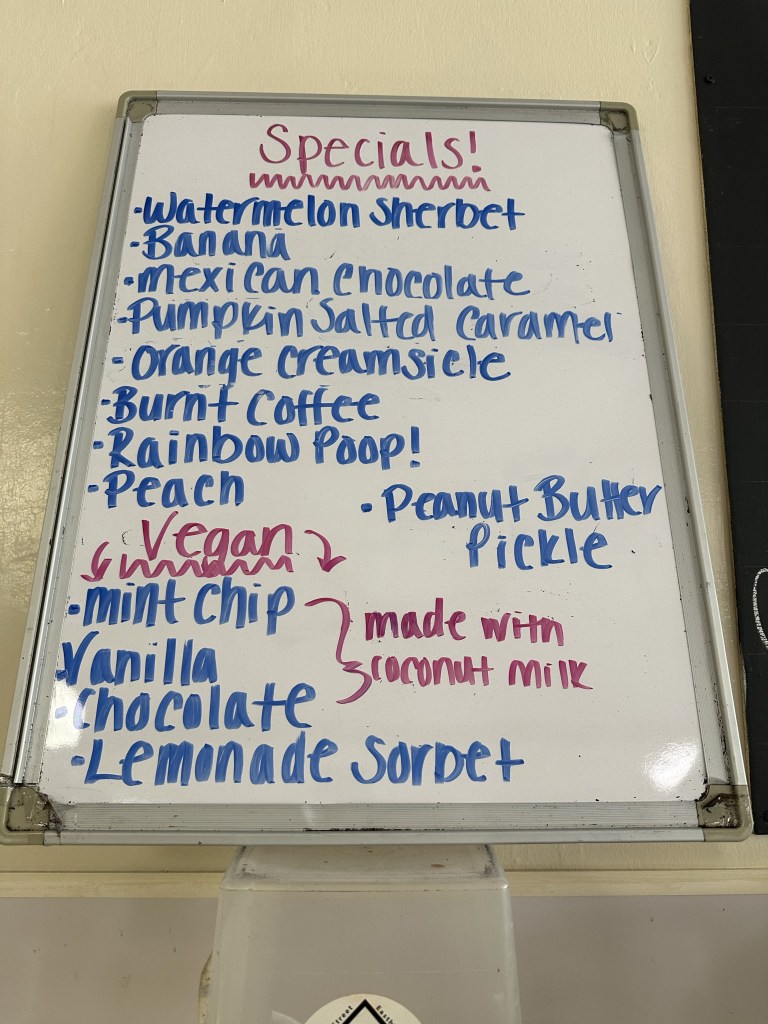 Specials!
·Watermelon Sherbet
·Banana
·Mexican Chocolate
·Pumpkin Salted Caramel
·Orange Creamsicle
·Burnt Coffee
·Rainbow Poop!
·Peach
·Peanut Butter
Pickle
Vegan
·mint chip
·Vanilla
·Chocolate
made with
coconut milk
·Lemonade Sorbet
Street